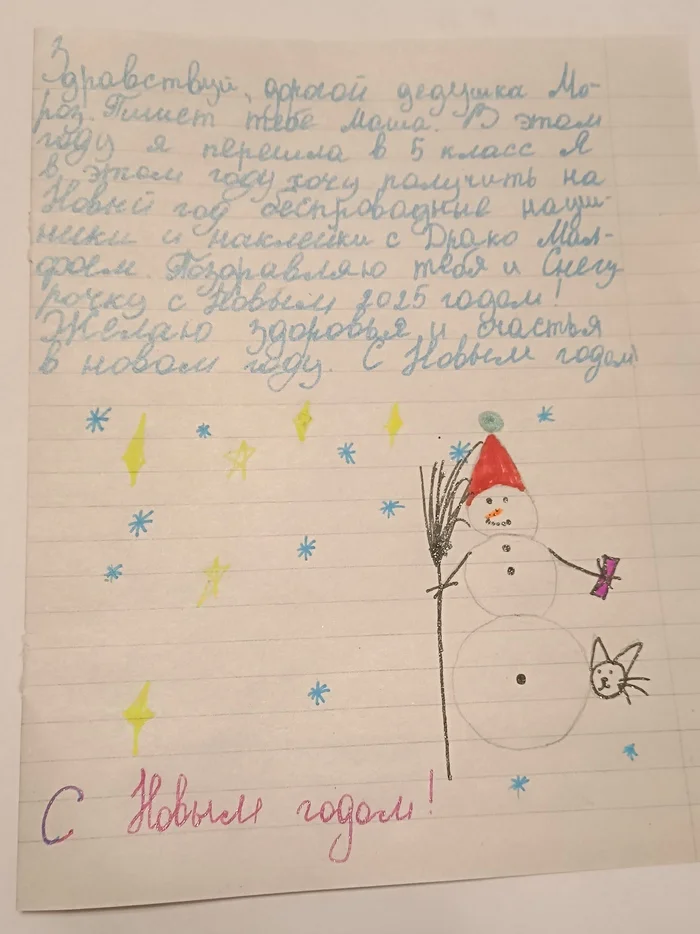 Здравствуй, дорогой дедушка Мо-
роз. Пишет тебе Маша. В этом
году я перешла в 5 класс Я
в этом году хочу получить на
Новый год беспроводные науш-
ники и наклейки с Драко Мал-
фоем. Поздравляю тебя и Снегу
рочку с Новым 2025 годом!
Желаю здоровья и счастья
в новом году. С Новым годом!
С Новым годом!